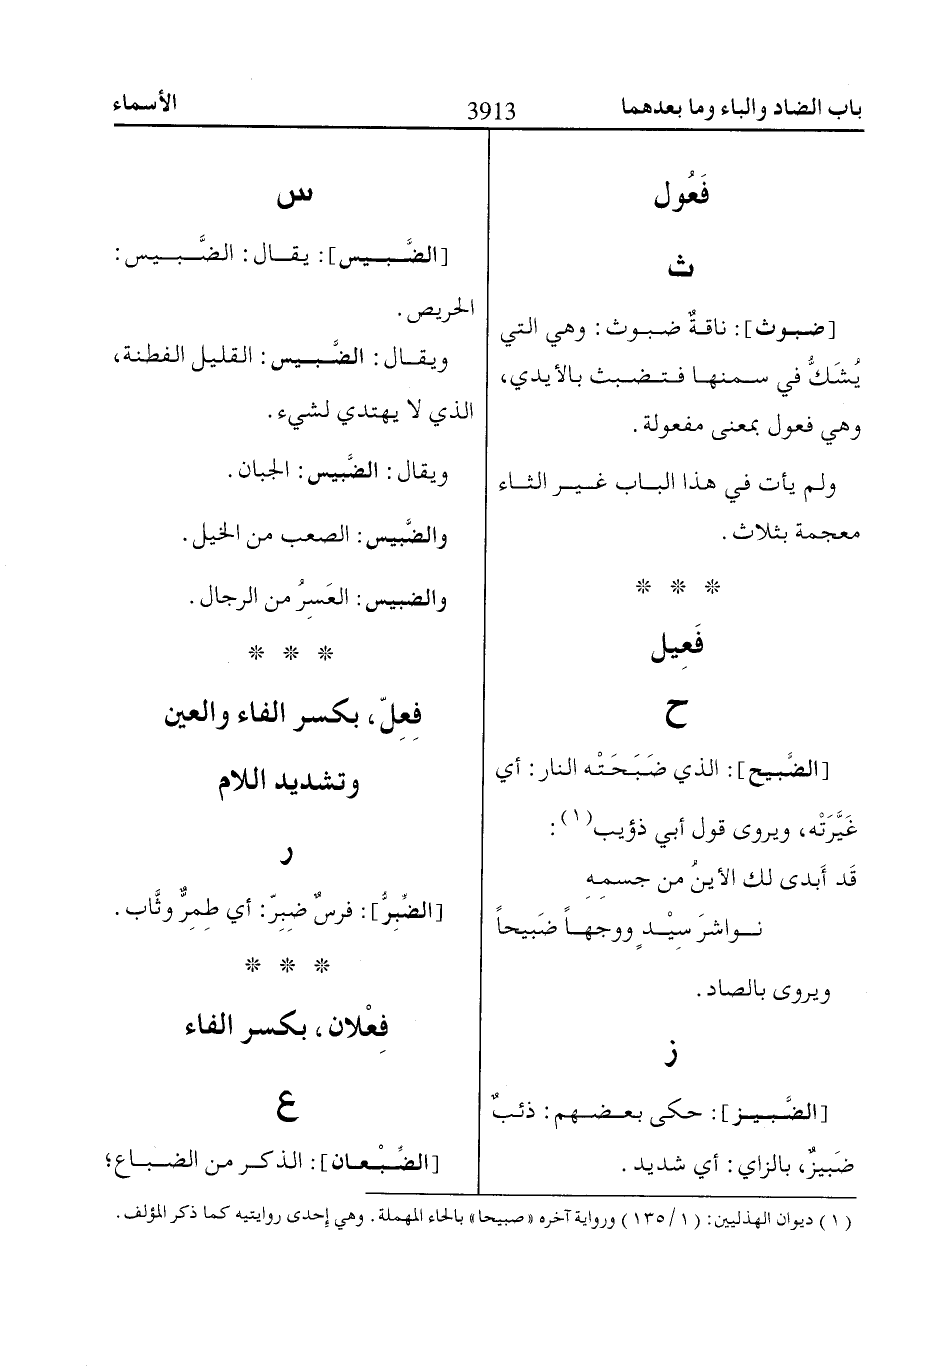 باب الضاد والباء وما بعدهما
3913
الأسماء
فَعُول
ث
[ضبوث]: ناقةٌ ضبوث: وهي التي
يُشَكُّ في سمنها فتضبث بالأيدي،
وهي فعول بمعنى مفعولة.
ولم يأت في هذا الباب غير الثاء
معجمة بثلاث.
* * *
فَعِيل
ح
[الضَّبيح]: الذي ضَبَحَتْه النار: أي
غَيَّرَتْه، ويروى قول أبي ذؤيب(١):
قَد أَبدى لك الأينُ من جسمِهِ
نواشرَ سِيْدٍ ووجهاً ضَبيحاً
ويروى بالصاد.
ز
[الضَّبيز]: حكى بعضهم: ذئبٌ
ضَبيزٌ، بالزاي: أي شديد.
س
[الضَّبيس]: يقال: الضَّبيس:
الحريص.
ويقال: الضَّبيس: القليل الفطنة،
الذي لا يهتدي لشيء.
ويقال: الضَّبيس: الجبان.
والضَّبيس: الصعب من الخيل.
والضبيس: العَسِرُ من الرجال.
* * *
فِعِلّ، بكسر الفاء والعين
وتشديد اللام
ر
[الضِّبِرُّ]: فرسٌ ضِبِرّ: أي طِمِرٌّ وثَّاب.
* * *
فِعْلان، بكسر الفاء
ع
[الضِّبْعان]: الذكر من الضباع؛
(١) ديوان الهذليين: (١/ ١٣٥) ورواية آخره «صبيحا» بالحاء المهملة. وهي إحدى روايتيه كما ذكر المؤلف.